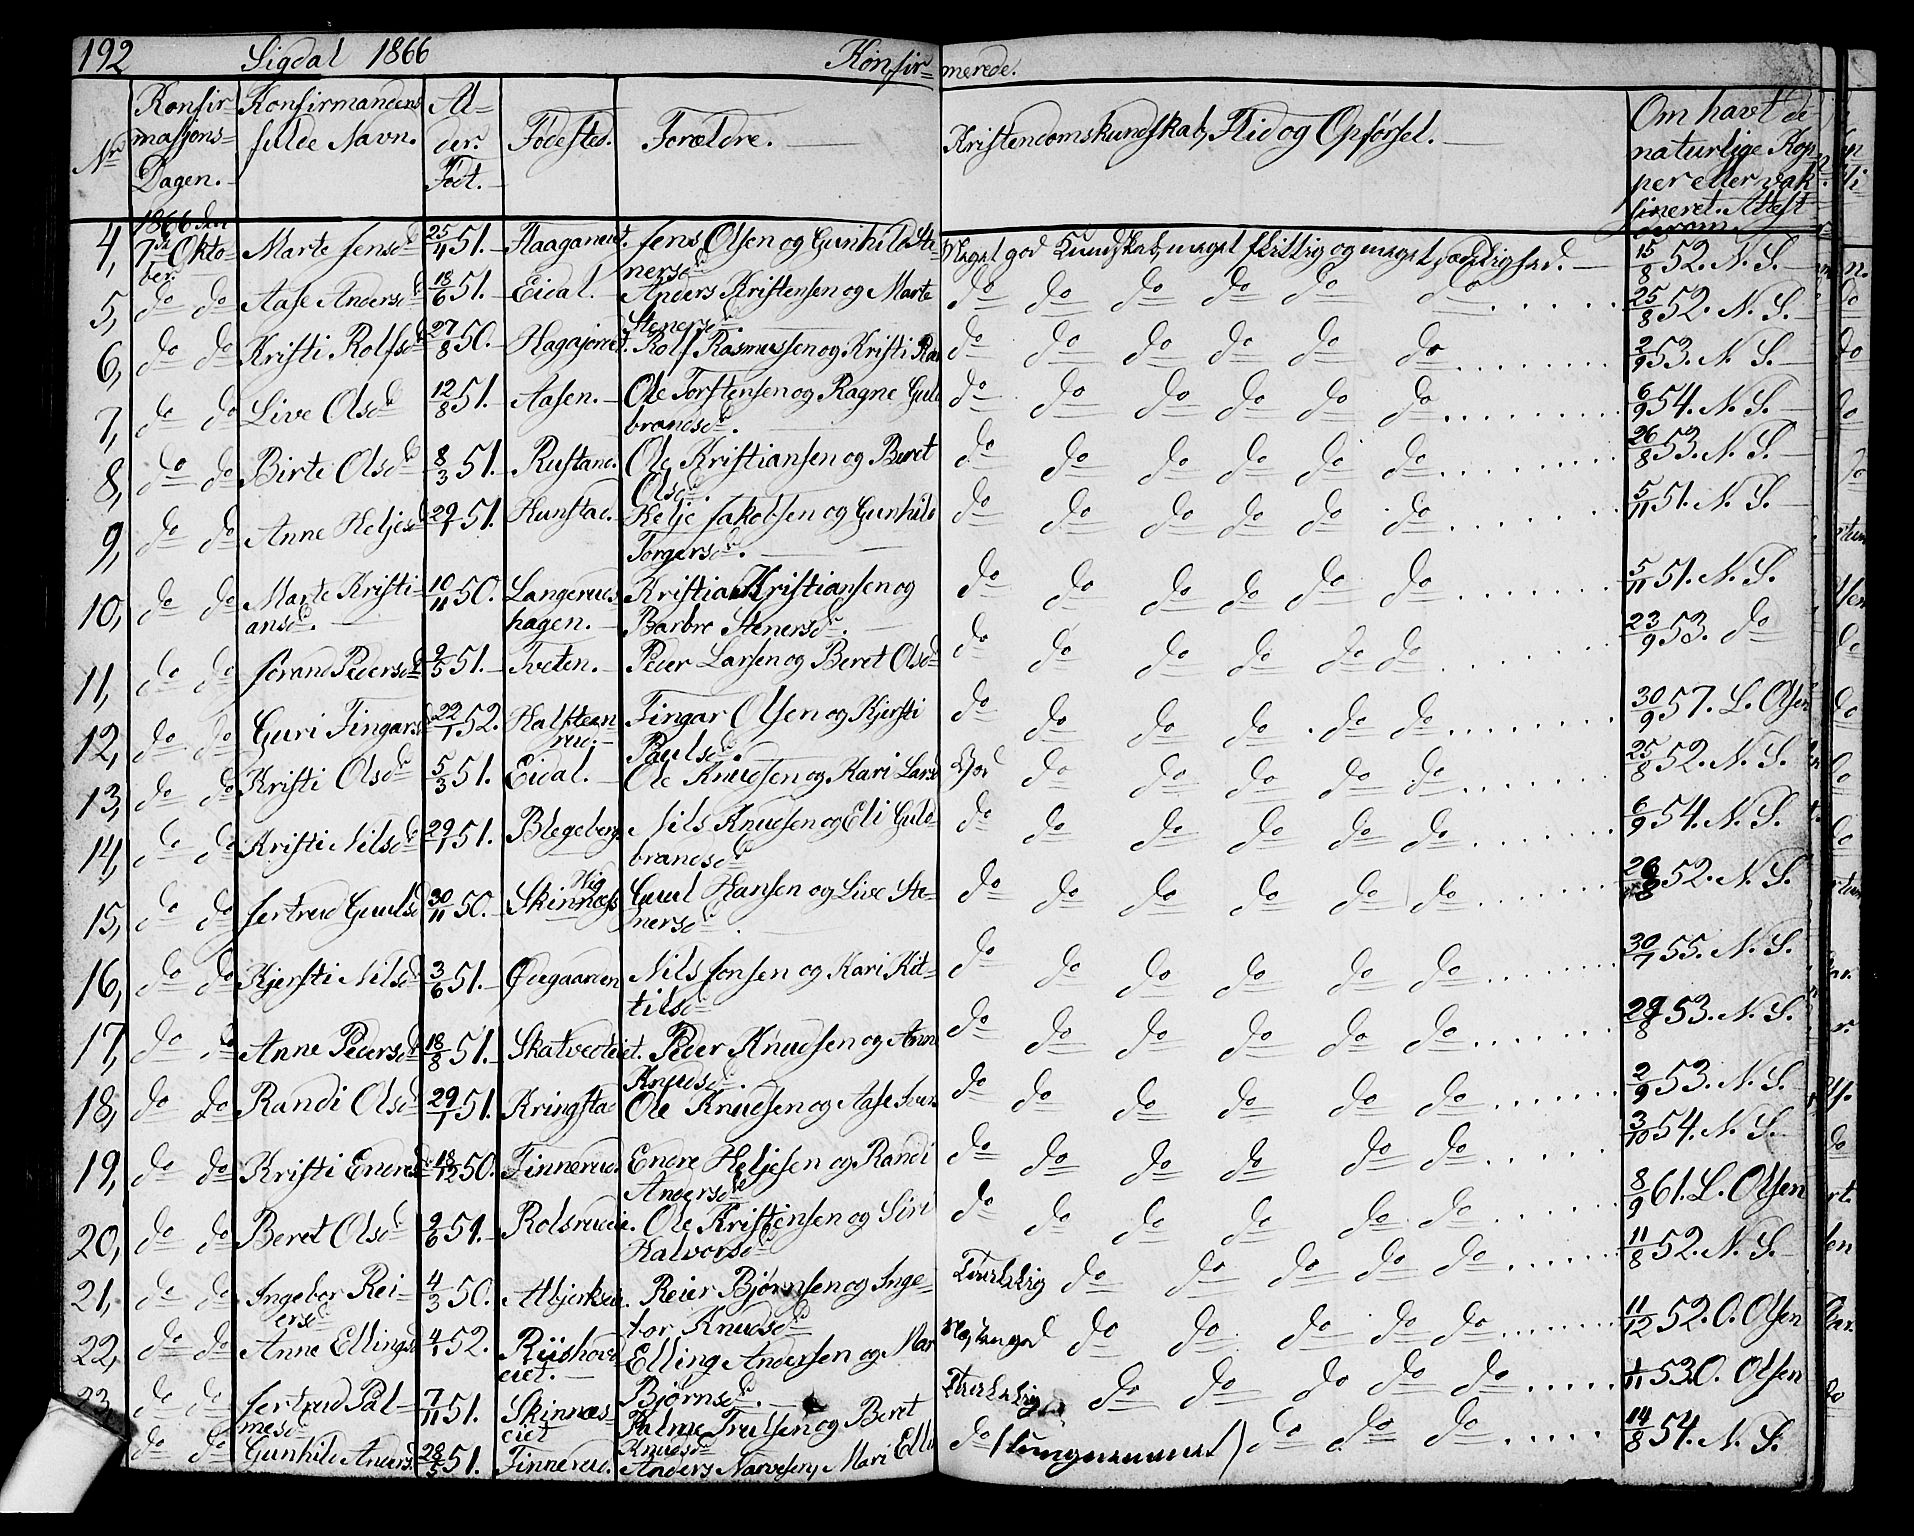 192 Sigdal 1866 Konfir- merede.
Nr Konfirmasjons- Dagen. Konfirmandens fulde Navn. Al- der. Født. Fødested. Forældre. Kristendomskundskab, Flid og Opførsel. Om havt de naturlige Kopper eller vaksineret. Attest derom.
4, 1866 den 7de Oktober. Marte Jensd 25/4 51. Haaganeiet. Jens Olsen og Gunhild Stenersd Meget god Kundskab, meget flittig og meget sædelighed. 15/8 52. N. S.
5, do do Aase Andersd 18/6 51. Eidal. Anders Kristensen og Marte Stenersd. do do do do do do 25/8 52. N. S.
6, do do Kristi Rolfsd 27/8 50. Rolf Rasmussen og Kristi do do do do do do 2/9 53. N. S.
7, do do Live Olsd 12/8 51. Aasen. Ole Torstensen og Ragne Gulbrandsd. do do do do do do 6/9 54. N. S.
8, do do Birte Olsd 8/3 51. Rustand. Ole Kristiansen og Beret Olsd. do do do do do do 26/8 53. N. S.
9, do do Anne Heljesd 29/1 51. Kunstad. Helje Jakobsen og Gunhild Torgersd. do do do do do do 5/11 51. N. S.
10, do do Marte Kristiansd. 10/11 50. Langeruds hagen. Kristian Kristiansen og Barbro Stenersd. do do do do do do 5/11 51. N. S.
11, do do Jørand Pedersd 9/5 51. Tveten. Peder Larsen og Beret Olsd do do do do do do 23/9 53. do
12, do do Guri Fingarsd 22/1 52. Halsteenrud. Fingar Olsen og Kjersti Paulsd. do do do do do do 30/9 57. L. Olsen
13, do do Kristi Olsd 5/3 51. Eidal. Ole Knudsen og Kari Larsd God do do do do do 25/8 52. N. S.
14, do do Kristi Nilsd 29/1 51. Blegeberg. Nils Knudsen og Eli Gulbrandsd do do do do do do 6/9 54. N. S.
15, do do Jertrud Gulsd 30/11 50. Skinnæs Gul Hansen og Live Stenersd. do do do do do do 26/8 52. N. S.
16, do do Kjersti Nilsd 3/6 51. Ødegaarden Nils Jonsen og Kari Kittilsd do do do do do do 30/7 55. N. S.
17, do do Anne Pedersd 18/8 51. Skatvedteiet. Peder Knudsen og Anne Knudsd. do do do do do do 29/8 53. N. S.
18, do do Randi Olsd 29/1 51. Kringstad Ole Knudsen og Aase do do do do do do 2/9 53. N. S.
19, do do Kristi Endresd 18/12 50. Finnerud. Endre Heljesen og Randi Andersd do do do do do do 3/10 54. N. S.
20, do do Beret Olsd 9/6 51. Rolsrudeie. Ole Kristensen og Siri Halvorsd do do do do do do 8/9 61. L. Olsen
21, do do Ingebor Reiersd 4/3 50. Reier Bjørnsen og Ingebor Knudsd do do do do do 11/8 52. N. S.
22, do do Anne Ellingsd 4/1 52. Riishovdeiet. Elling Andersen og Mar Bjørnsd. do do do do do 11/12 52. O. Olsen
23, do do Jertrud Palmesd 7/11 51. Skinnæseiet Palme Trulsen og Beret Knudsd do do do do do 1/11 53. O. Olsen
do do Gunhild Andersd 28/5 51. Finnerud. Anders Narvesen, Mari do (tungnemmed) do do do 14/8 54. N. S.